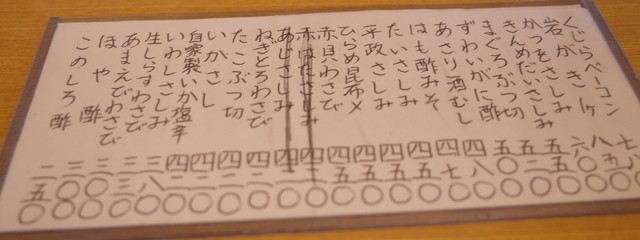 くじらベーコン 七
岩がき 一ヶ 八五〇
かつをさしみ 六〇〇
きんめだいさしみ 五五〇
まぐろぶつ切 五二〇
ずわいがに酢 五〇〇
あさり酒むし 四八〇
はも酢みそ 四七〇
たいさしみ 四五〇
平政さしみ 四五〇
ひらめ昆布〆 四五〇
赤貝わさび 四五〇
赤はたさしみ 四二〇
あじさしみ 四二〇
ねぎとろわさび 四二〇
たこぶつ切 四二〇
いかさし 四二〇
自家製いか塩辛 四二〇
いわしさしみ 三八〇
生しらすわさび 三三〇
あまえびわさび 三〇〇
ほや酢 三〇〇
このしろ酢 二五〇